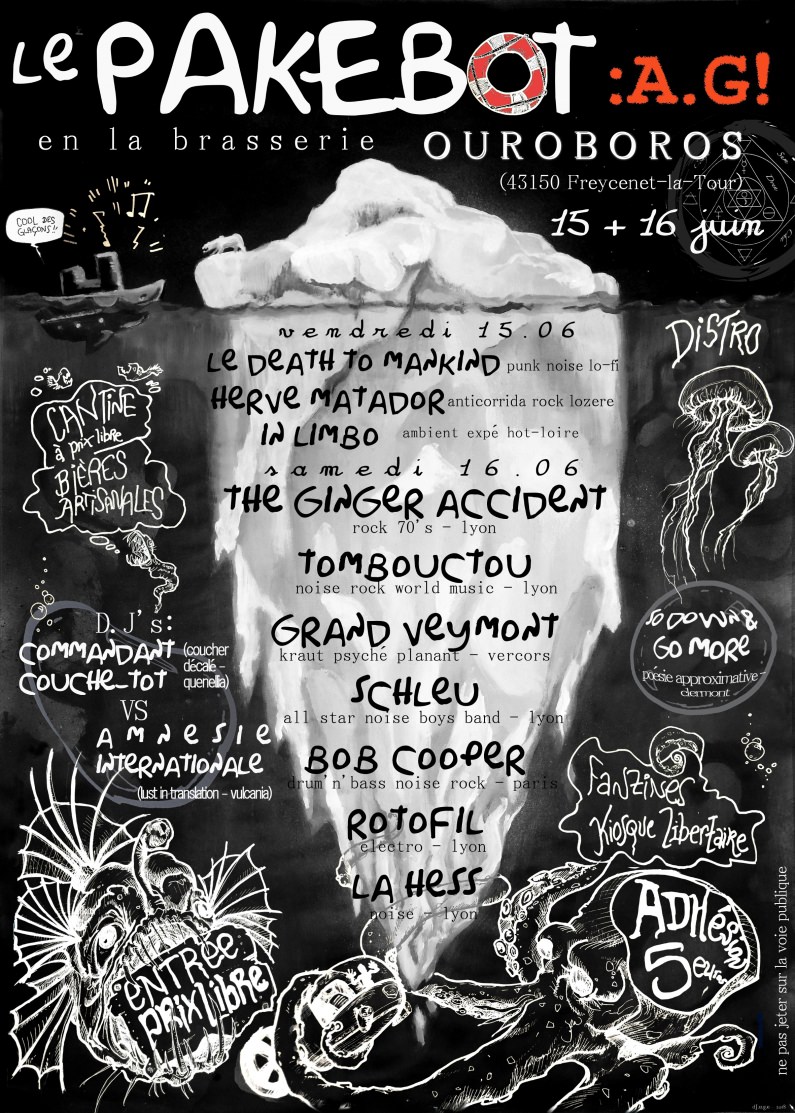 Le PAKEBOT :A.G!
en la brasserie OUROBOROS
(43150 Freycenet-la-Tour)
15 + 16 juin
COOL DES
GLAÇONS!!
vendredi 15.06
Le DEATH TO MANKIND punk noise lo-fi
HERVE MATADOR anticorrida rock lozere
IN LIMBO ambient expé hot-loire
samedi 16.06
THE GINGER ACCIDENT
rock 70's - lyon
TOMBOUCTOU
noise rock world music - lyon
GRAND VEYMONT
kraut psyché planant - vercors
SCHLEU
all star noise boys band - lyon
BOB COOPER
drum'n'bass noise rock - paris
ROTOFIL
electro - lyon
LA HESS
noise - lyon
CANTINE
à prix libre
BIÈRES
ARTISANALES
D.J's:
COMMANDANT
COUCHE-TOT
(coucher
décalé -
quenellia)
VS
AMNESIE
INTERNATIONALE
(lust in translation - vulcania)
ENTRÉE
prix libre
DISTRO
SO DOWN &
GO MORE
poésie approximative -
clermont
Fanzines
Kiosque Libertaire
ADHésion
5 euros
ne pas jeter sur la voie publique